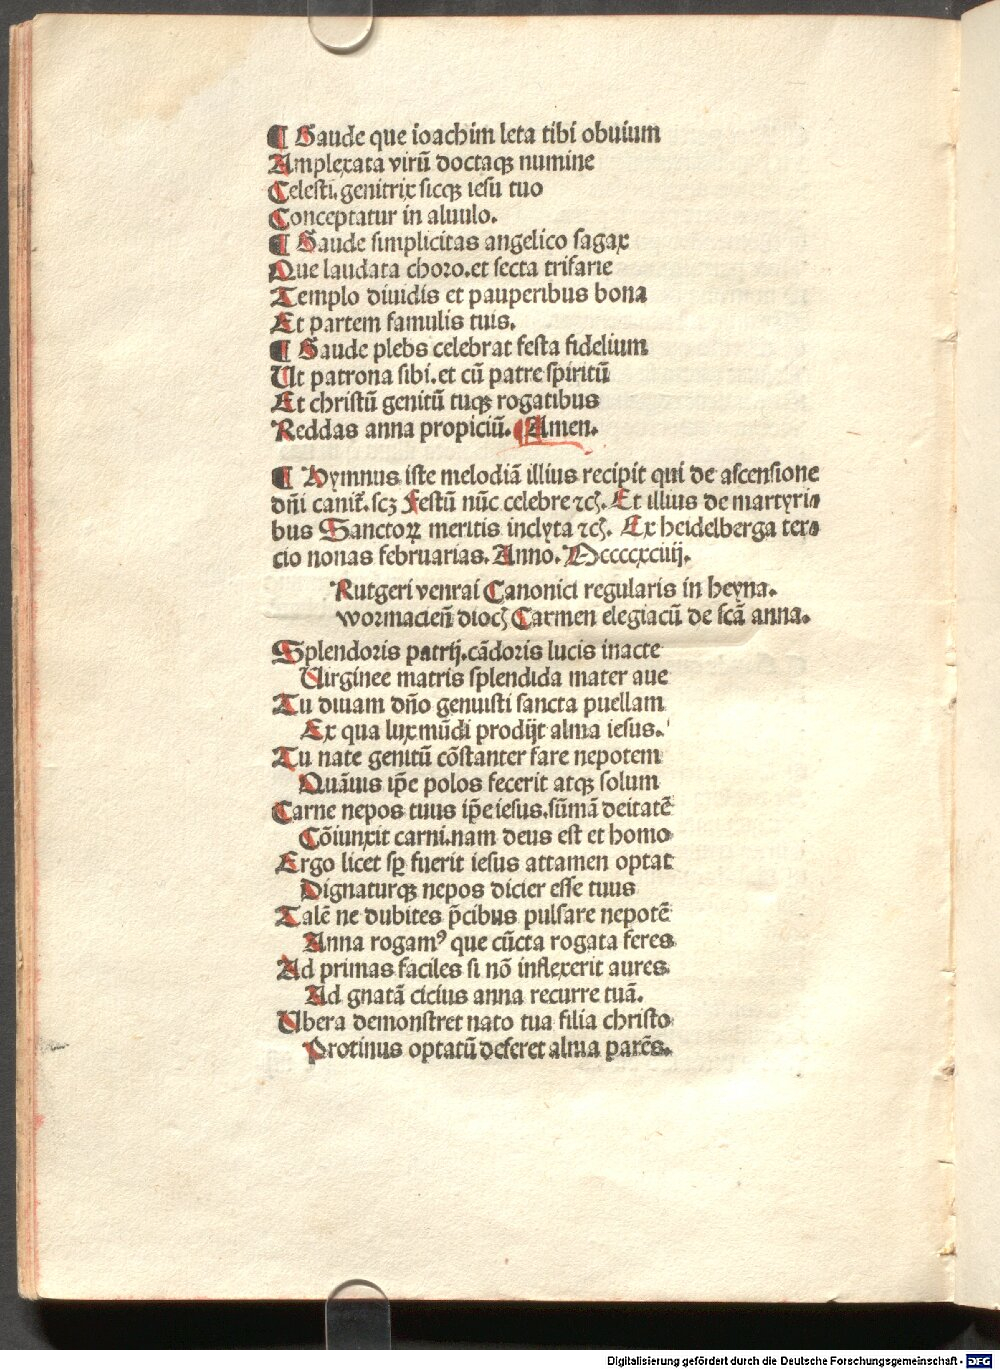 ¶ Gaude que ioachim leta tibi obuium
Amplexata virū doctaqꝫ numine
Celesti. genitrix sicqꝫ iesu tuo
Conceptatur in aluulo.
¶ Gaude simplicitas angelico sagax
Que laudata choro. et secta trifarie
Templo diuidis et pauperibus bona
Et partem famulis tuis.
¶ Gaude plebs celebrat festa fidelium
Ut patrona sibi. et cū patre spiritū
Et christū genitū tuqꝫ rogatibus
Reddas anna propiciū. Amen.
¶ Hymnus iste melodiā illius recipit qui de ascensione
dñi canit̄. scꝫ Festū nūc celebre ⁊cꝭ. Et illius de martyri⸗
bus Sanctoꝝ meritis inclyta ⁊cꝭ. Ex heidelberga ter⸗
cio nonas februarias. Anno. Mccccxciiij.
Rutgeri venrai Canonici regularis in heyna.
wormacieñ diocꝭ Carmen elegiacū de scā anna.
Splendoris patrij. cādoris lucis inacte
Uirginee matris splendida mater aue
Tu diuam dño genuisti sancta puellam
Ex qua lux mūdi prodijt alma iesus.
Tu nate genitū cōstanter fare nepotem
Quāuis ip̄e polos fecerit atqꝫ solum
Carne nepos tuus ip̄e iesus. sūmā deitatē
Cōiunxit carni. nam deus est et homo
Ergo licet sꝑ fuerit iesus attamen optat
Dignaturqꝫ nepos dicier esse tuus
Talē ne dubites p̄cibus pulsare nepotē
Anna rogamꝰ que cūcta rogata feres
Ad primas faciles si nō inflexerit aures
Ad gnatā cicius anna recurre tuā.
Ubera demonstret nato tua filia christo
Protinus optatū deferet alma parēs.
Digitalisierung gefördert durch die Deutsche Forschungsgemeinschaft - DFG